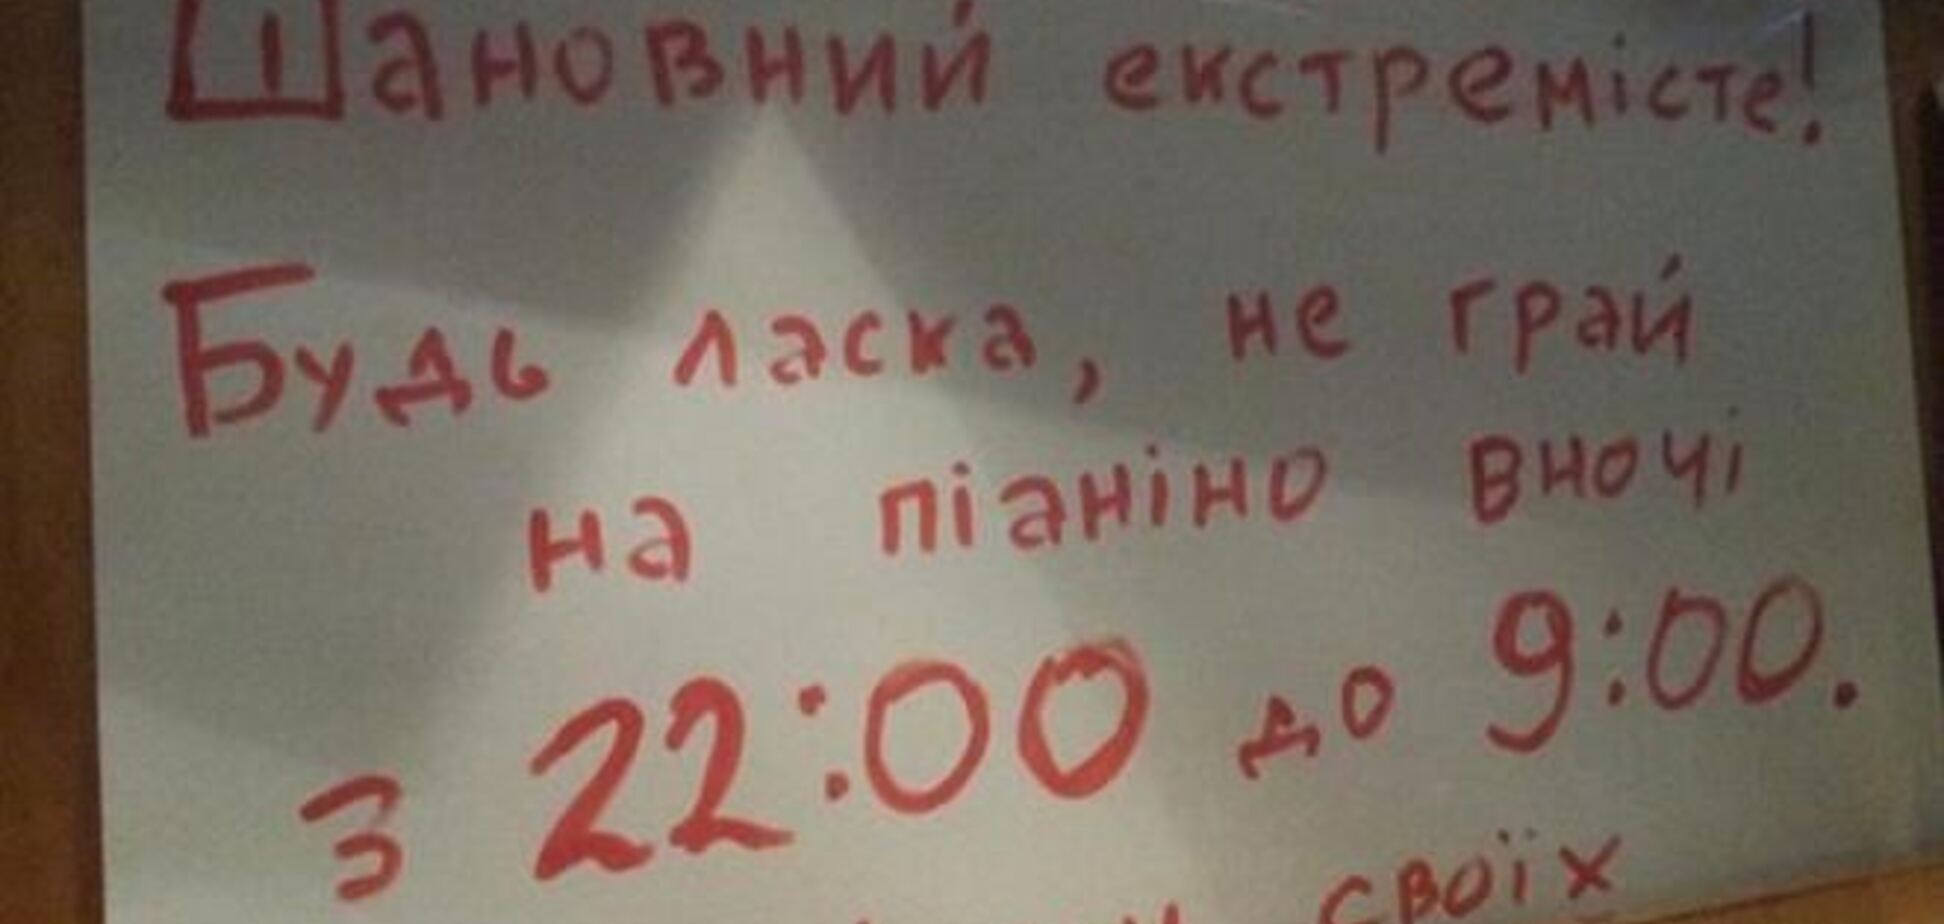 Шановний екстремісте!
Будь ласка, не грай
на піаніно вночі
з 22:00 до 9:00.
своїх